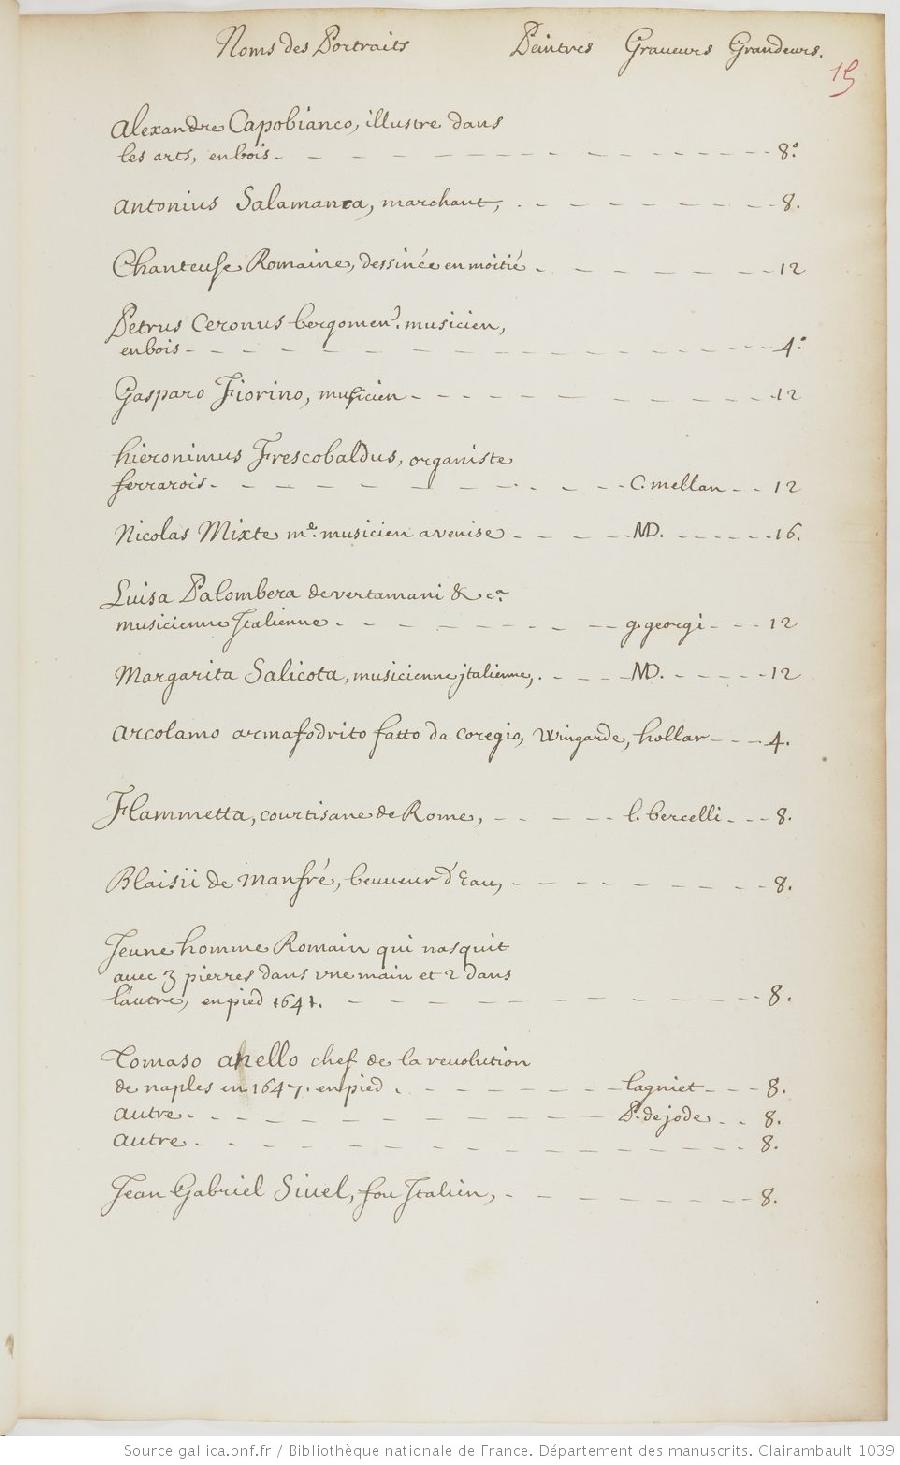 Noms des Portraits Peintres Graueurs Grandeurs.
15
Alexandre Capobianco, illustre dans
les arts, en bois - - - 8.°
Antonius Salamanca, marchant, - - - 8.
Chanteuse Romaine, dessinée en moitié - - - 12
Petrus Ceronus bergomens. musicien,
en bois - - - 4.°
Gasparo Fiorino, musicien - - - 12
hieronimus Frescobaldus, organiste
ferrarois - - - C. mellan - - 12
Nicolas Mixte me. musicien a venise - - - MD. - - - 16.
Luisa Palombera de vertamani & ca
musicienne Italienne - - - g. georgi - - - 12
Margarita Salicota, musicienne jtalienne, - - - MD. - - - 12
Arcolamo armafodrito fatto da coregio, Wingarde, hollar - - - 4.
Flammetta, courtisane de Rome, - - - l. bercelli - - - 8.
Blaisii de manfré, beuueur d'Eau, - - - 8.
Jeune homme Romain qui nasquit
auec 3 pierres dans vne main et 2 dans
l'autre, en pied 1641. - - - 8.
Tomaso anello chef de la reuolution
de naples en 1647. en pied. - - - lagniet - - - 8.
autre - - - P. de jode - - 8.
autre - - - 8.
Jean Gabriel Siuel, fou Italien, - - - 8.
Source gallica.bnf.fr / Bibliothèque nationale de France. Département des manuscrits. Clairambault 1039